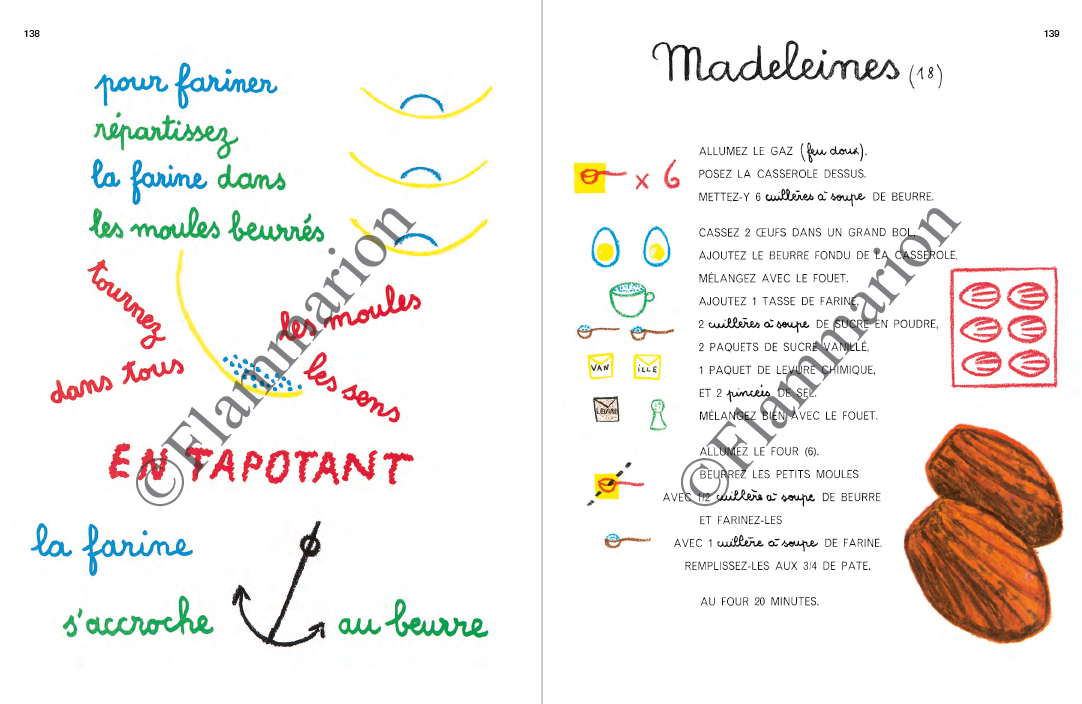 138
pour fariner
répartissez
la farine dans
les moules beurrés
tournez
les moules
dans tous
les sens
EN TAPOTANT
la farine
s'accroche au beurre
©Flammarion
139
Madeleines (18)
ALLUMEZ LE GAZ (feu doux).
POSEZ LA CASSEROLE DESSUS.
x 6
METTEZ-Y 6 cuillères à soupe DE BEURRE.
CASSEZ 2 ŒUFS DANS UN GRAND BOL,
AJOUTEZ LE BEURRE FONDU DE LA CASSEROLE,
MÉLANGEZ AVEC LE FOUET.
AJOUTEZ 1 TASSE DE FARINE,
2 cuillères à soupe DE SUCRE EN POUDRE,
2 PAQUETS DE SUCRE VANILLÉ,
VAN ILLE
1 PAQUET DE LEVURE CHIMIQUE,
ET 2 pincées DE SEL.
LEVURE
MÉLANGEZ BIEN AVEC LE FOUET.
ALLUMEZ LE FOUR (6).
BEURREZ LES PETITS MOULES
AVEC 1/2 cuillère à soupe DE BEURRE
ET FARINEZ-LES
AVEC 1 cuillère à soupe DE FARINE.
REMPLISSEZ-LES AUX 3/4 DE PATE.
AU FOUR 20 MINUTES.
©Flammarion